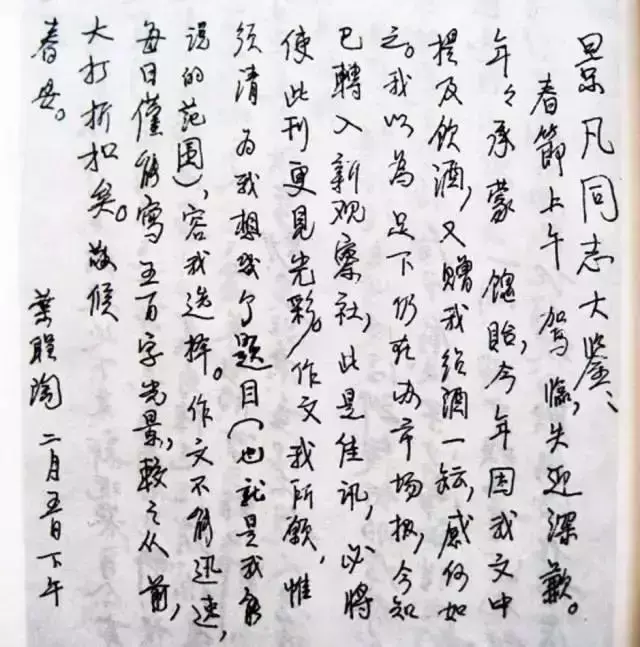 景凡同志大鉴、
春節上午　駕臨，失迎深歉。
年々承蒙　餽貽，今年因我文中
提及飲酒，又贈我紹酒一罈，感何如
之。我以為足下仍在办市场报，今知
已轉入新观察社，此是佳讯，必將
使此刊更見光彩。作文我所願，惟
须请为我想幾个题目（也就是我能
说的范围），容我选择。作文不能迅速，
每日僅能寫五百字光景，較之从前，
大打折扣矣。敬候
春安。
葉聖陶　二月五日下午